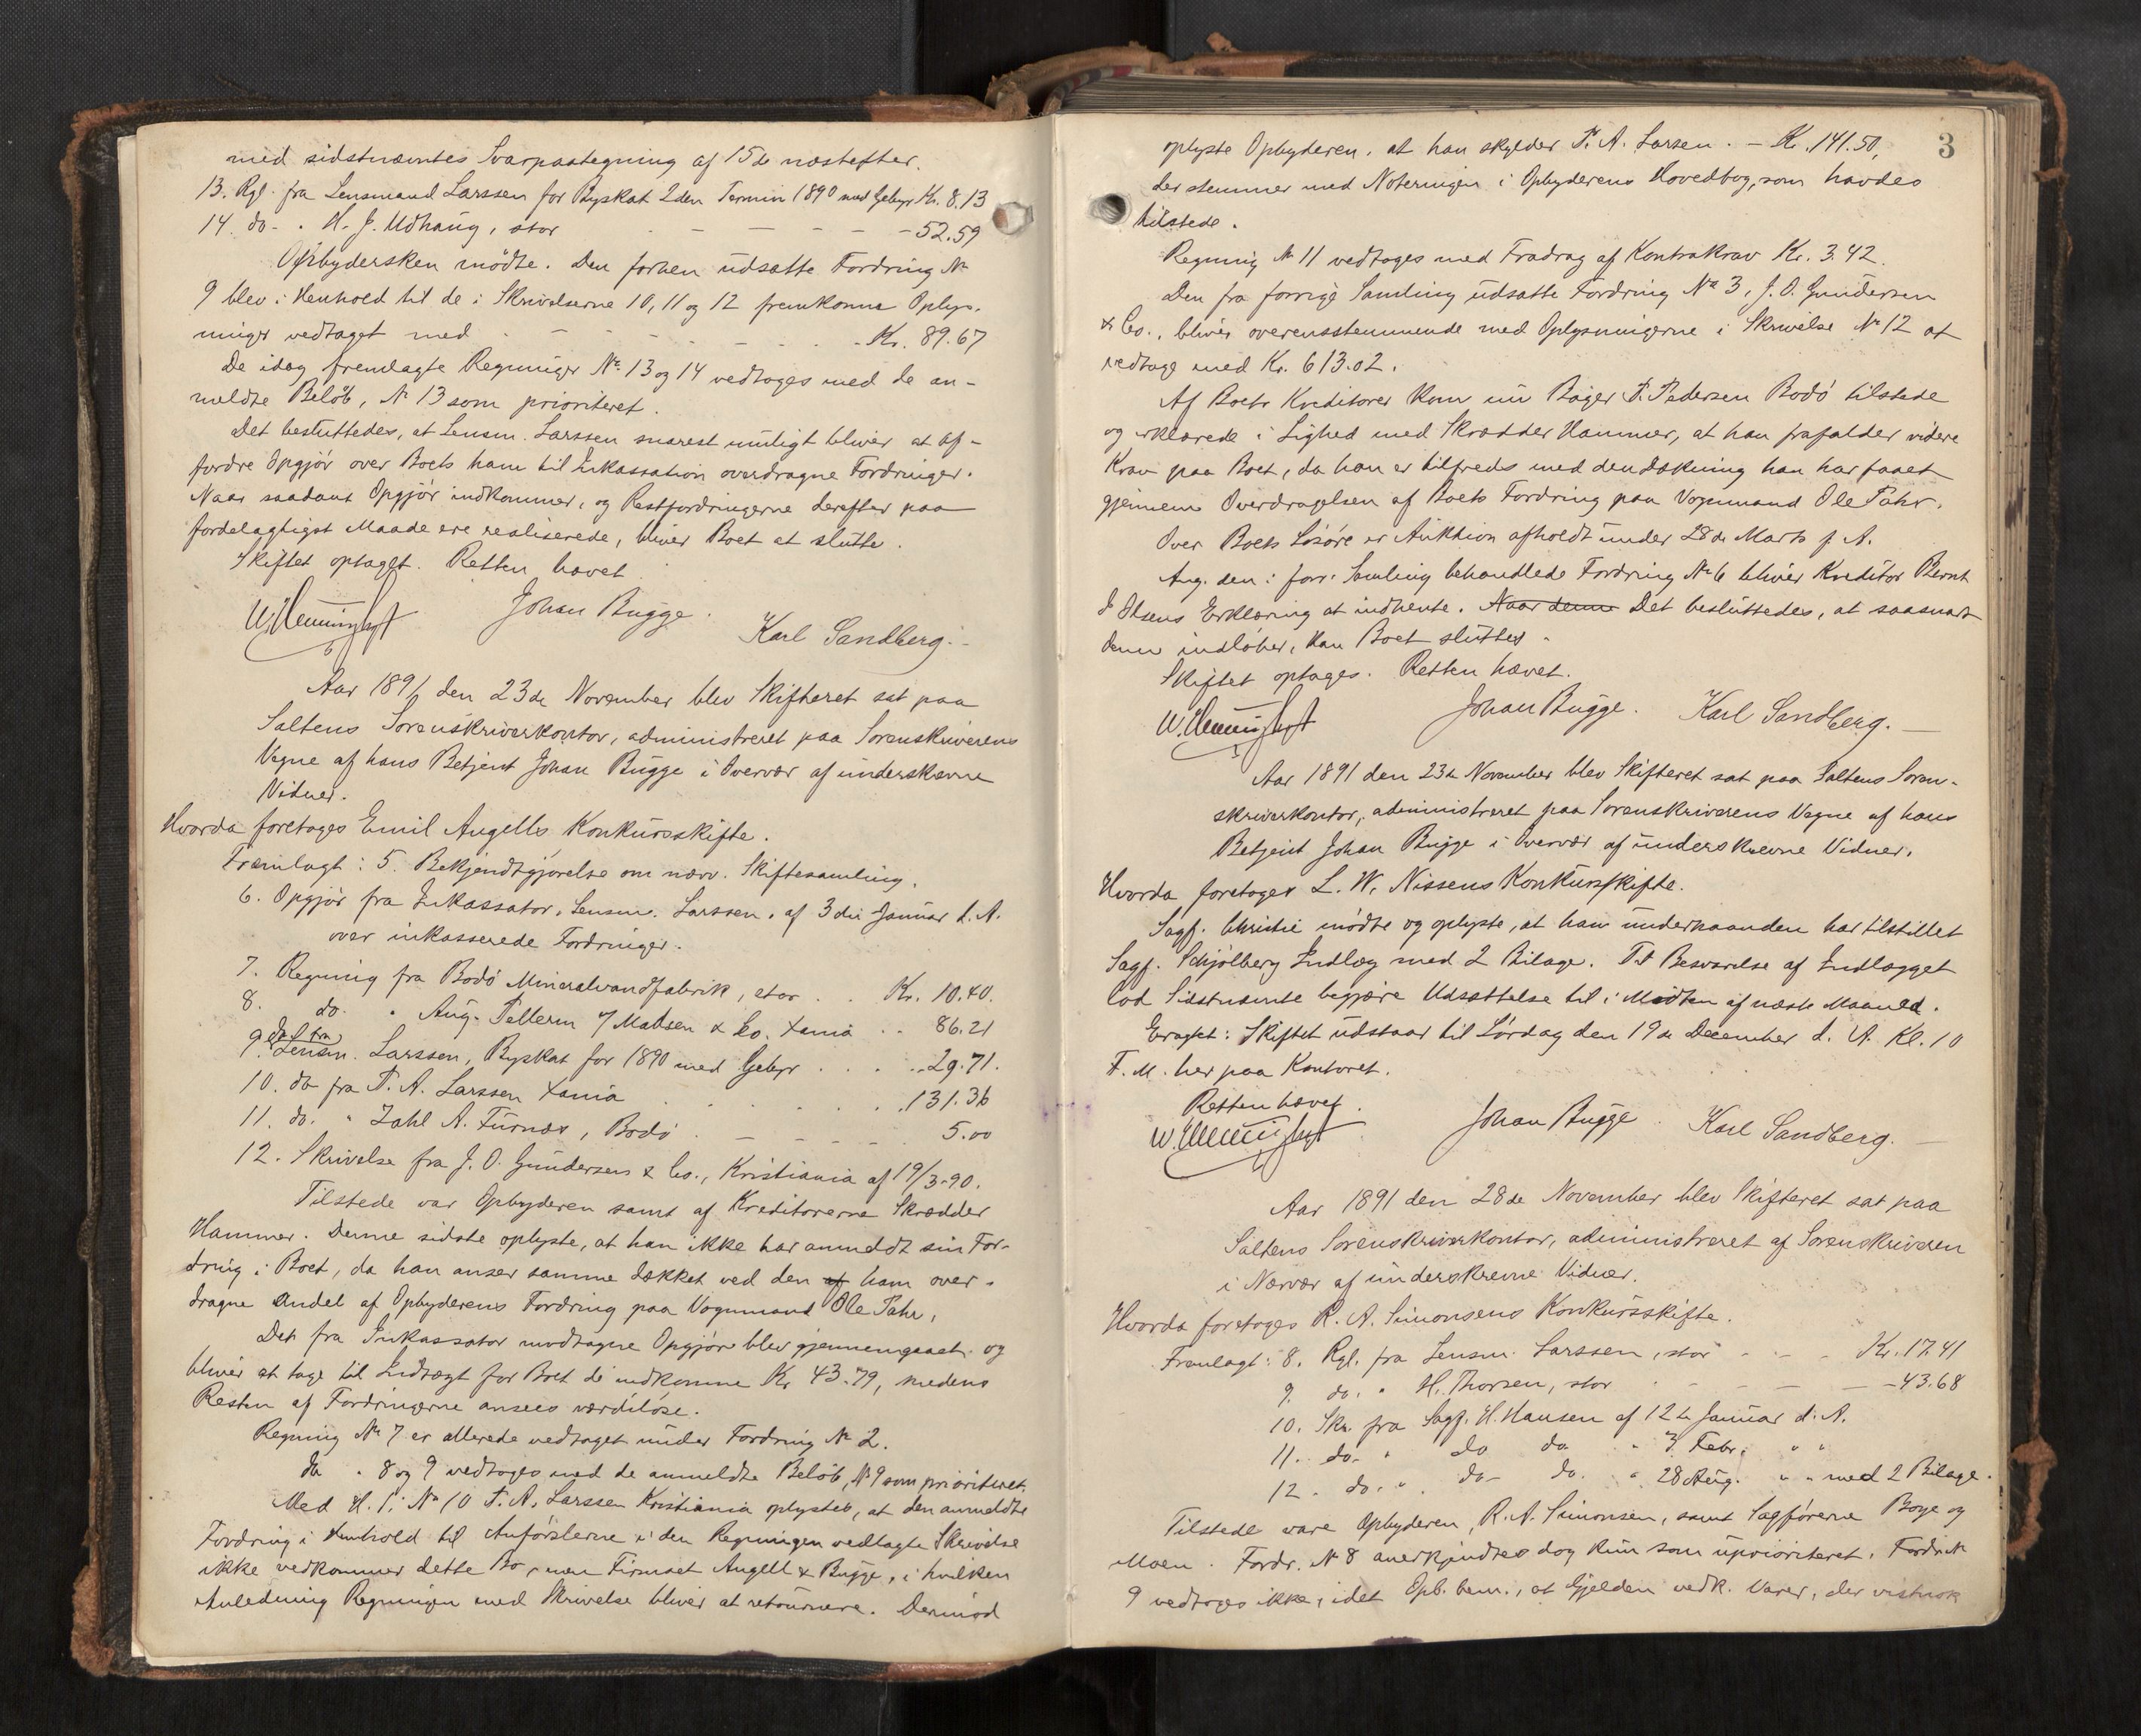 med sidstnævntes Svarpaategning af 15de næstefter.
13. Rgl. fra Lensmand Larssen for Byskat 2den Termin 1890 med Gebyr Kr. 8.13
14. do. " H. J. Udhaug, stor - - - - 52.59
Opbydersken mödte. Den forhen udsatte Fordring No
9 blev i Henhold til de i Skrivelserne 10, 11 og 12 fremkomne Oplys-
ninger vedtaget med - - - Kr. 89.67
De idag fremlagte Regninger No. 13 og 14 vedtoges med de an-
meldte Belöb, No 13 som prioriteret.
Det besluttedes, at Lensm. Larssen snarest muligt bliver at af-
fordre Opgjör over Boets ham til Inkassation overdragne Fordringer.
Naar saadant Opgjör indkommer, og Restfordringerne derefter paa
fordelagtigst Maade ere realiserede, bliver Boet at slutte.
Skiftet optaget. Retten hævet
Johan Bugge.
Karl Sandberg.
Aar 1891 den 23de November blev Skifteret sat paa
Saltens Sorenskriverkontor, administreret paa Sorenskriverens
Vegne af hans Betjent Johan Bugge i Overvær af underskrevne
Vidner.
Hvorda foretoges Emil Angells Konkursskifte.
Fremlagt: 5. Bekjendtgjörelse om nærv. Skiftesamling.
6. Opgjör fra Inkassator, Lensm. Larssen, af 3die Januar d. A.
over inkasserede Fordringer.
7. Regning fra Bodö Mineralvandfabrik, stor . . Kr. 10.40.
8. do. " Aug. Pellerin / Madsen & Co. Xania . . 86.21
9. do fra Lensm. Larssen, Byskat for 1890 med Gebyr . . . 29.71.
10. do fra P. A. Larssen Xania . . . . 131.36
11. do. " Zahl A. Furnæs, Bodö . - - - 5.00
12. Skrivelse fra J. O. Gundersen & Co., Kristiania af 19/3-90.
Tilstede var Opbyderen samt af Kreditorerne Skrædder
Hammer. Denne sidste oplyste, at han ikke har anmeldt sin For-
dring i Boet, da han anser samme dækket ved den af ham over-
dragne Andel af Opbyderens Fordring paa Vognmand Ole Pahr.
Det fra Inkassator modtagne Opgjör blev gjennemgaaet og
bliver at tage til Indtægt for Boet de indkomne Kr 43.79, medens
Resten af Fordringerne ansees værdilöse.
Regning No 7 er allerede vedtaget under Fordring No 2.
do " 8 og 9 vedtoges med de anmeldte Belöb, No 9 som prioriteret.
Med H. t. No 10 P. A. Larssen Kristiania oplystes, at den anmeldte
Fordring i Henhold til Anförslerne i den Regningen vedlagte Skrivelse
ikke vedkommer dette Bo, men Firmaet Angell & Bugge, i hvilken
Anledning Regningen med Skrivelse bliver at retournere. Derimod
3
oplyste Opbyderen, at han skylder P. A. Larsen. - Kr. 141.50,
der stemmer med Noteringen i Opbyderens Hovedbog, som havdes
tilstede.
Regning No 11 vedtoges med Fradrag af Kontrakrav Kr. 3.42.
Den fra forrige Samling udsatte Fordring No 3, J. O. Gundersen
& Co., bliver overensstemmende med Oplysningerne i Skrivelse No 12 at
vedtage med Kr. 613.02.
Af Boets Kreditorer kom nu Bager P. Pedersen Bodö tilstede
og erklærede i Lighed med Skrædder Hammer, at han frafalder videre
Krav paa Boet, da han er tilfreds med den Dækning han har faaet
gjennem Overdragelsen af Boets Fordring paa Vognmand Ole Pahr.
Over Boets Lösöre er Auktion afholdt under 28de Marts f. A.
Ang. den i forr. Samling behandlede Fordring No 6 bliver Kreditor Bernt
J. Olsens Erklæring at indhente. Naar denne Det besluttedes, at saasnart
denne indlöber, kan Boet sluttes.
Skiftet optages. Retten hævet.
Johan Bugge. Karl Sandberg.
Aar 1891 den 23de November blev Skifteret sat paa Saltens Soren-
skriverkontor, administreret paa Sorenskriverens Vegne af hans
Betjent Johan Bugge i Overvær af underskrevne Vidner.
Hvorda foretoges L. W. Nissens Konkursskifte.
Sagf. Christie mödte og oplyste, at han underhaanden har tilstillet
Sagf. Schjölberg Indlæg med 2 Bilage. Til Besvarelse af Indlægget
lod Sidstnævnte begjære Udsættelse til i Midten af næste Maaned.
Eragtet: Skiftet udstaar til Lördag den 19de December d. A. Kl. 10
F. M. her paa Kontoret.
Retten hævet.
Johan Bugge Karl Sandberg.
Aar 1891 den 28de November blev Skifteret sat paa
Saltens Sorenskriverkontor, administreret af Sorenskriveren
i Nærvær af underskrevne Vidner.
Hvorda foretoges R. A. Simonsens Konkursskifte.
Fremlagt: 8. Rgl. fra Lensm. Larssen, stor - - - Kr. 17.41
9. do. " H. Thorsen, stor - - - - 43.68
10. Skr. fra Sagf. H. Hansen af 12te Januar d. A.
11. do. " do do " 3 Febr. " "
12. do. " do- do. " 28 Aug. " " med 2 Bilage.
Tilstede vare Opbyderen, R. A. Simonsen, samt Sagförerne Boye og
Moen. Fordr. No 8 anerkjendtes dog kun som uprioriteret. Fordr. No
9 vedtoges ikke, idet Opb. bem., at Gjælden vedk. Varer, der vistnok